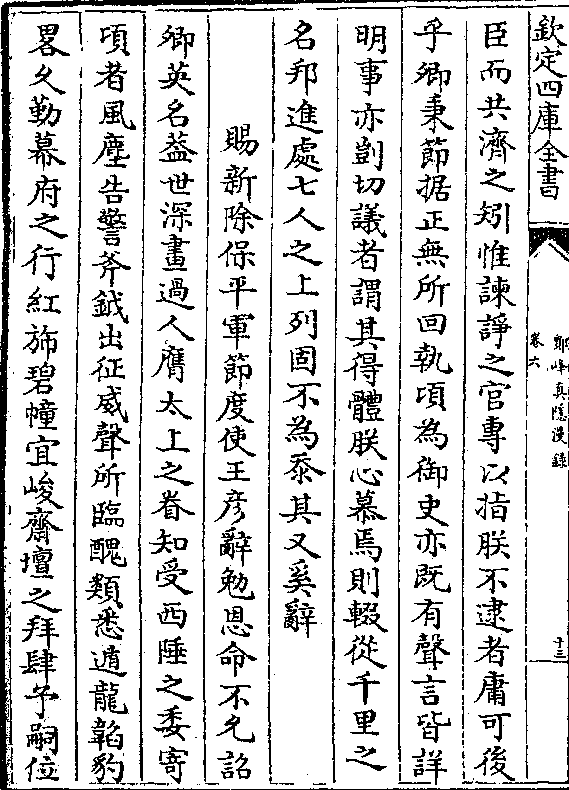 欽定四庫全書
鄮峰真隱漫錄
卷六
十三
臣而共濟之矧惟諫諍之官專以指朕不逮者庸可後
乎卿秉節据正無所回執頃為御史亦既有聲言皆詳
明事亦剴切議者謂其得體朕心慕焉則輟從千里之
名邦進處七人之上列固不為忝其又奚辭
賜新除保平軍節度使王彦辭勉恩命不允詔
卿英名葢世深畫過人膺太上之眷知受西陲之委寄
頃者風塵告警斧鉞出征威聲所臨醜類悉遁龍韜豹
畧久勤幕府之行紅斾碧幢宜峻齋壇之拜肆予嗣位